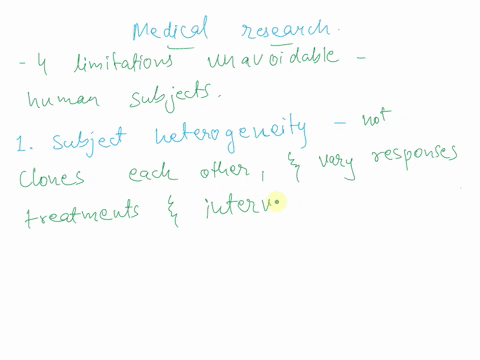 Medical research.
- 4 limitations unavoidable -
human subjects.
1. Subject heterogeneity - not
Clones each other, & vary responses
treatments & interv